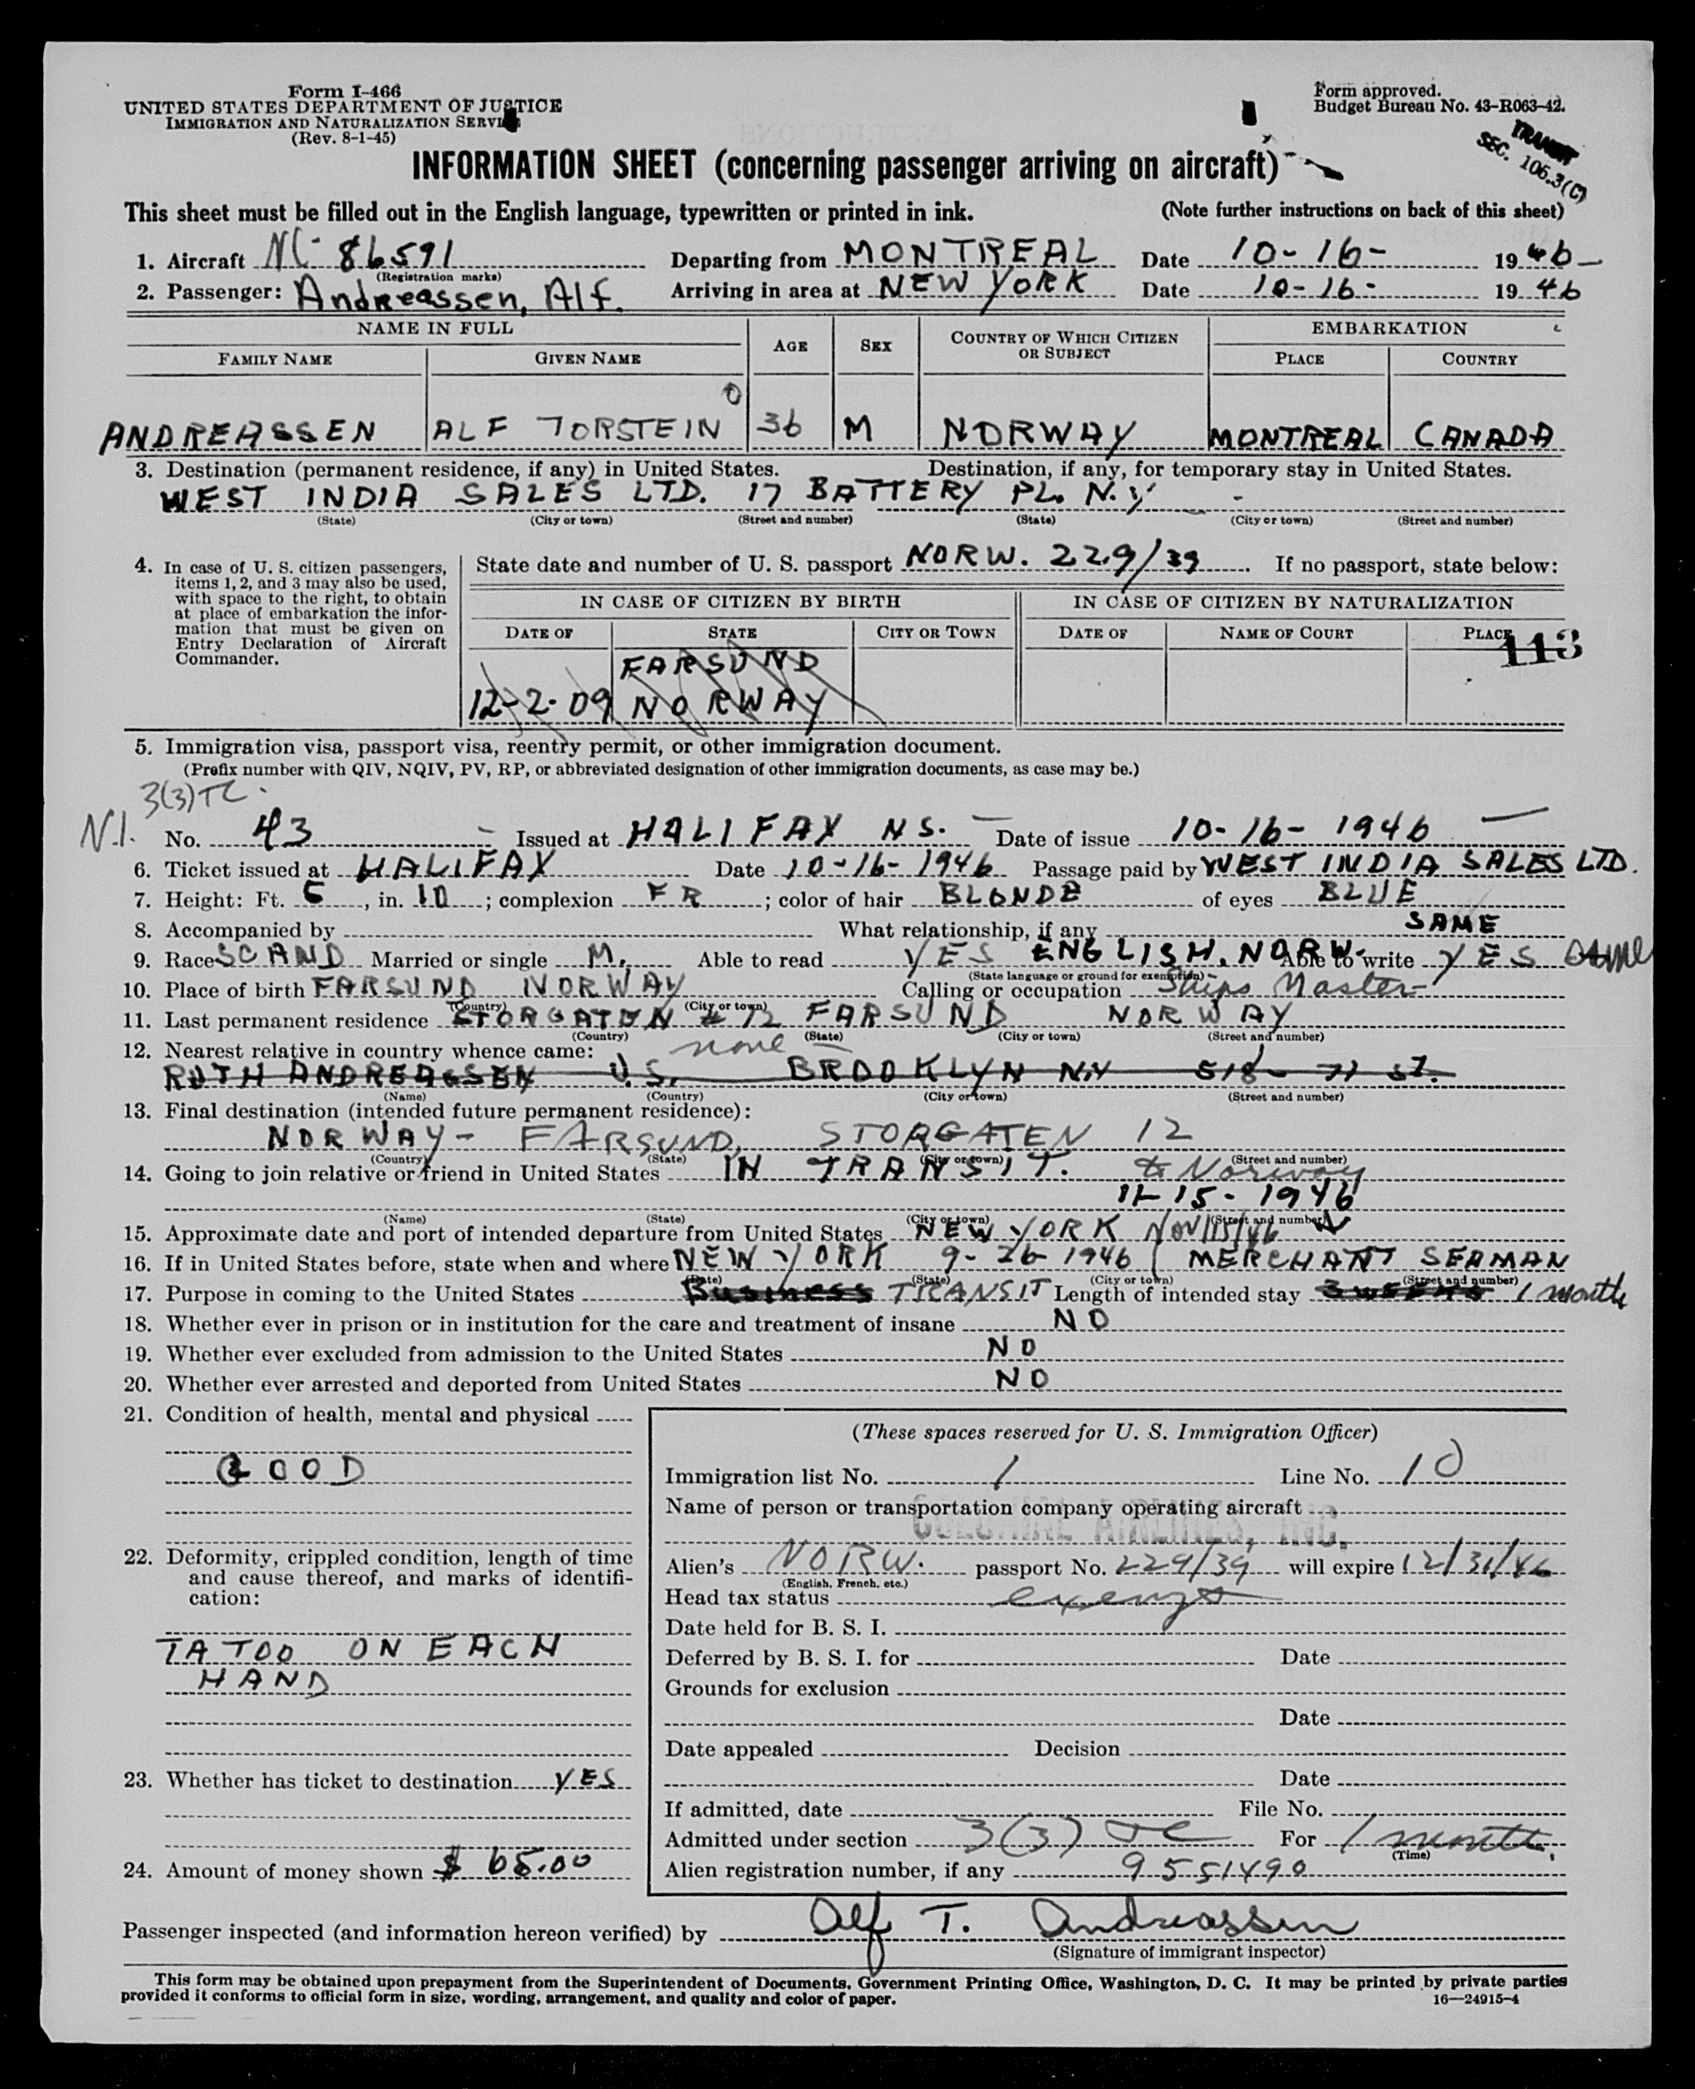 Form I-466
UNITED STATES DEPARTMENT OF JUSTICE
IMMIGRATION AND NATURALIZATION SERVICE
(Rev. 8-1-45)
Form approved.
Budget Bureau No. 43-R063-42.
TRANSIT
SEC. 106.3(C)
INFORMATION SHEET (concerning passenger arriving on aircraft)
This sheet must be filled out in the English language, typewritten or printed in ink. (Note further instructions on back of this sheet)
1. Aircraft NC-86591 Departing from MONTREAL Date 10-16- 1946
(Registration marks)
2. Passenger: Andreassen, Alf. Arriving in area at NEW YORK Date 10-16- 1946
NAME IN FULL AGE SEX COUNTRY OF WHICH CITIZEN OR SUBJECT EMBARKATION
FAMILY NAME GIVEN NAME PLACE COUNTRY
ANDREASSEN ALF TORSTEIN 36 M NORWAY MONTREAL CANADA
3. Destination (permanent residence, if any) in United States. Destination, if any, for temporary stay in United States.
WEST INDIA SALES LTD. 17 BATTERY PL. N.Y
(State) (City or town) (Street and number) (State) (City or town) (Street and number)
4. In case of U. S. citizen passengers,
items 1, 2, and 3 may also be used,
with space to the right, to obtain
at place of embarkation the infor-
mation that must be given on
Entry Declaration of Aircraft
Commander.
State date and number of U. S. passport NORW. 229/39. If no passport, state below:
IN CASE OF CITIZEN BY BIRTH IN CASE OF CITIZEN BY NATURALIZATION
DATE OF STATE CITY OR TOWN DATE OF NAME OF COURT PLACE
113
FARSUND
12-2-09 NORWAY
5. Immigration visa, passport visa, reentry permit, or other immigration document.
(Prefix number with QIV, NQIV, PV, RP, or abbreviated designation of other immigration documents, as case may be.)
3(3)TC.
N.I. No. 43 Issued at HALIFAX NS. Date of issue 10-16-1946
6. Ticket issued at HALIFAX Date 10-16-1946 Passage paid by WEST INDIA SALES LTD.
7. Height: Ft. 5, in. 10; complexion FR; color of hair BLONDE of eyes BLUE
8. Accompanied by What relationship, if any SAME
9. Race SCAND Married or single M. Able to read YES ENGLISH, NORW. Able to write YES same
(State language or ground for exemption)
10. Place of birth FARSUND NORWAY Calling or occupation Ships Master
(Country) (City or town)
11. Last permanent residence STORGATEN # 12 FARSUND NORWAY
(Country) (State) (City or town) (Street and number)
12. Nearest relative in country whence came: none
RUTH ANDREASSEN U.S. BROOKLYN NY 518- 71 ST.
(Name) (Country) (City or town) (Street and number)
13. Final destination (intended future permanent residence):
NORWAY- FARSUND, STORGATEN 12
(Country) (State) (City or town) (Street and number)
14. Going to join relative or friend in United States IN TRANSIT. to Norway
11-15-1946
(Name) (State) (City or town) (Street and number)
15. Approximate date and port of intended departure from United States NEW YORK Nov/15/46
16. If in United States before, state when and where NEW YORK 9-26-1946 MERCHANT SEAMAN
(Date) (State) (City or town) (Street and number)
17. Purpose in coming to the United States Business TRANSIT Length of intended stay 3 WEEKS 1 month
18. Whether ever in prison or in institution for the care and treatment of insane NO
19. Whether ever excluded from admission to the United States NO
20. Whether ever arrested and deported from United States NO
21. Condition of health, mental and physical
GOOD
22. Deformity, crippled condition, length of time
and cause thereof, and marks of identifi-
cation:
TATOO ON EACH
HAND
23. Whether has ticket to destination YES
24. Amount of money shown $ 65.00
(These spaces reserved for U. S. Immigration Officer)
Immigration list No. 1 Line No. 10
Name of person or transportation company operating aircraft
COLONIAL AIRLINES, INC.
Alien's NORW. passport No. 229/39 will expire 12/31/46
(English, French, etc.)
Head tax status exempt
Date held for B. S. I.
Deferred by B. S. I. for Date
Grounds for exclusion
Date
Date appealed Decision
Date
If admitted, date File No.
Admitted under section 3(3) TC For 1 month.
(Time)
Alien registration number, if any 9551490
Passenger inspected (and information hereon verified) by Alf T. Andreassen
(Signature of immigrant inspector)
This form may be obtained upon prepayment from the Superintendent of Documents, Government Printing Office, Washington, D. C. It may be printed by private parties
provided it conforms to official form in size, wording, arrangement, and quality and color of paper. 16—24915-4